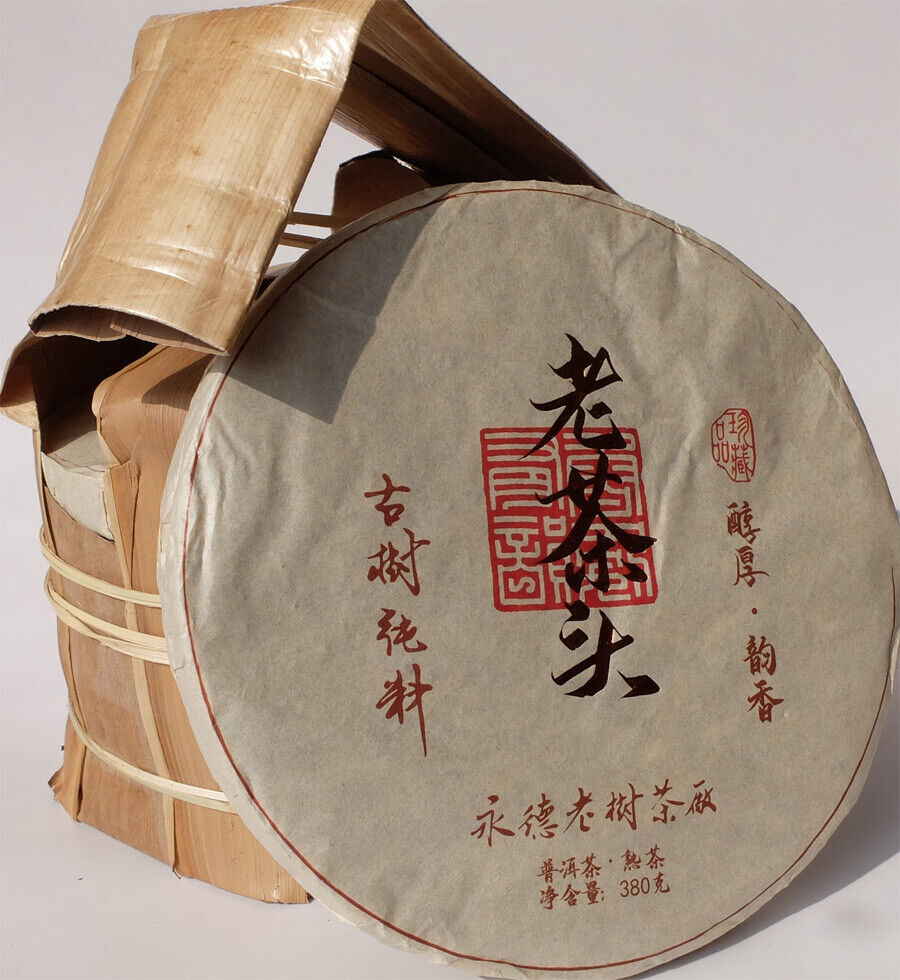 老茶头
珍藏品
醇厚·韵香
古樹純料
永德老樹茶廠
普洱茶·熟茶
净含量: 380克